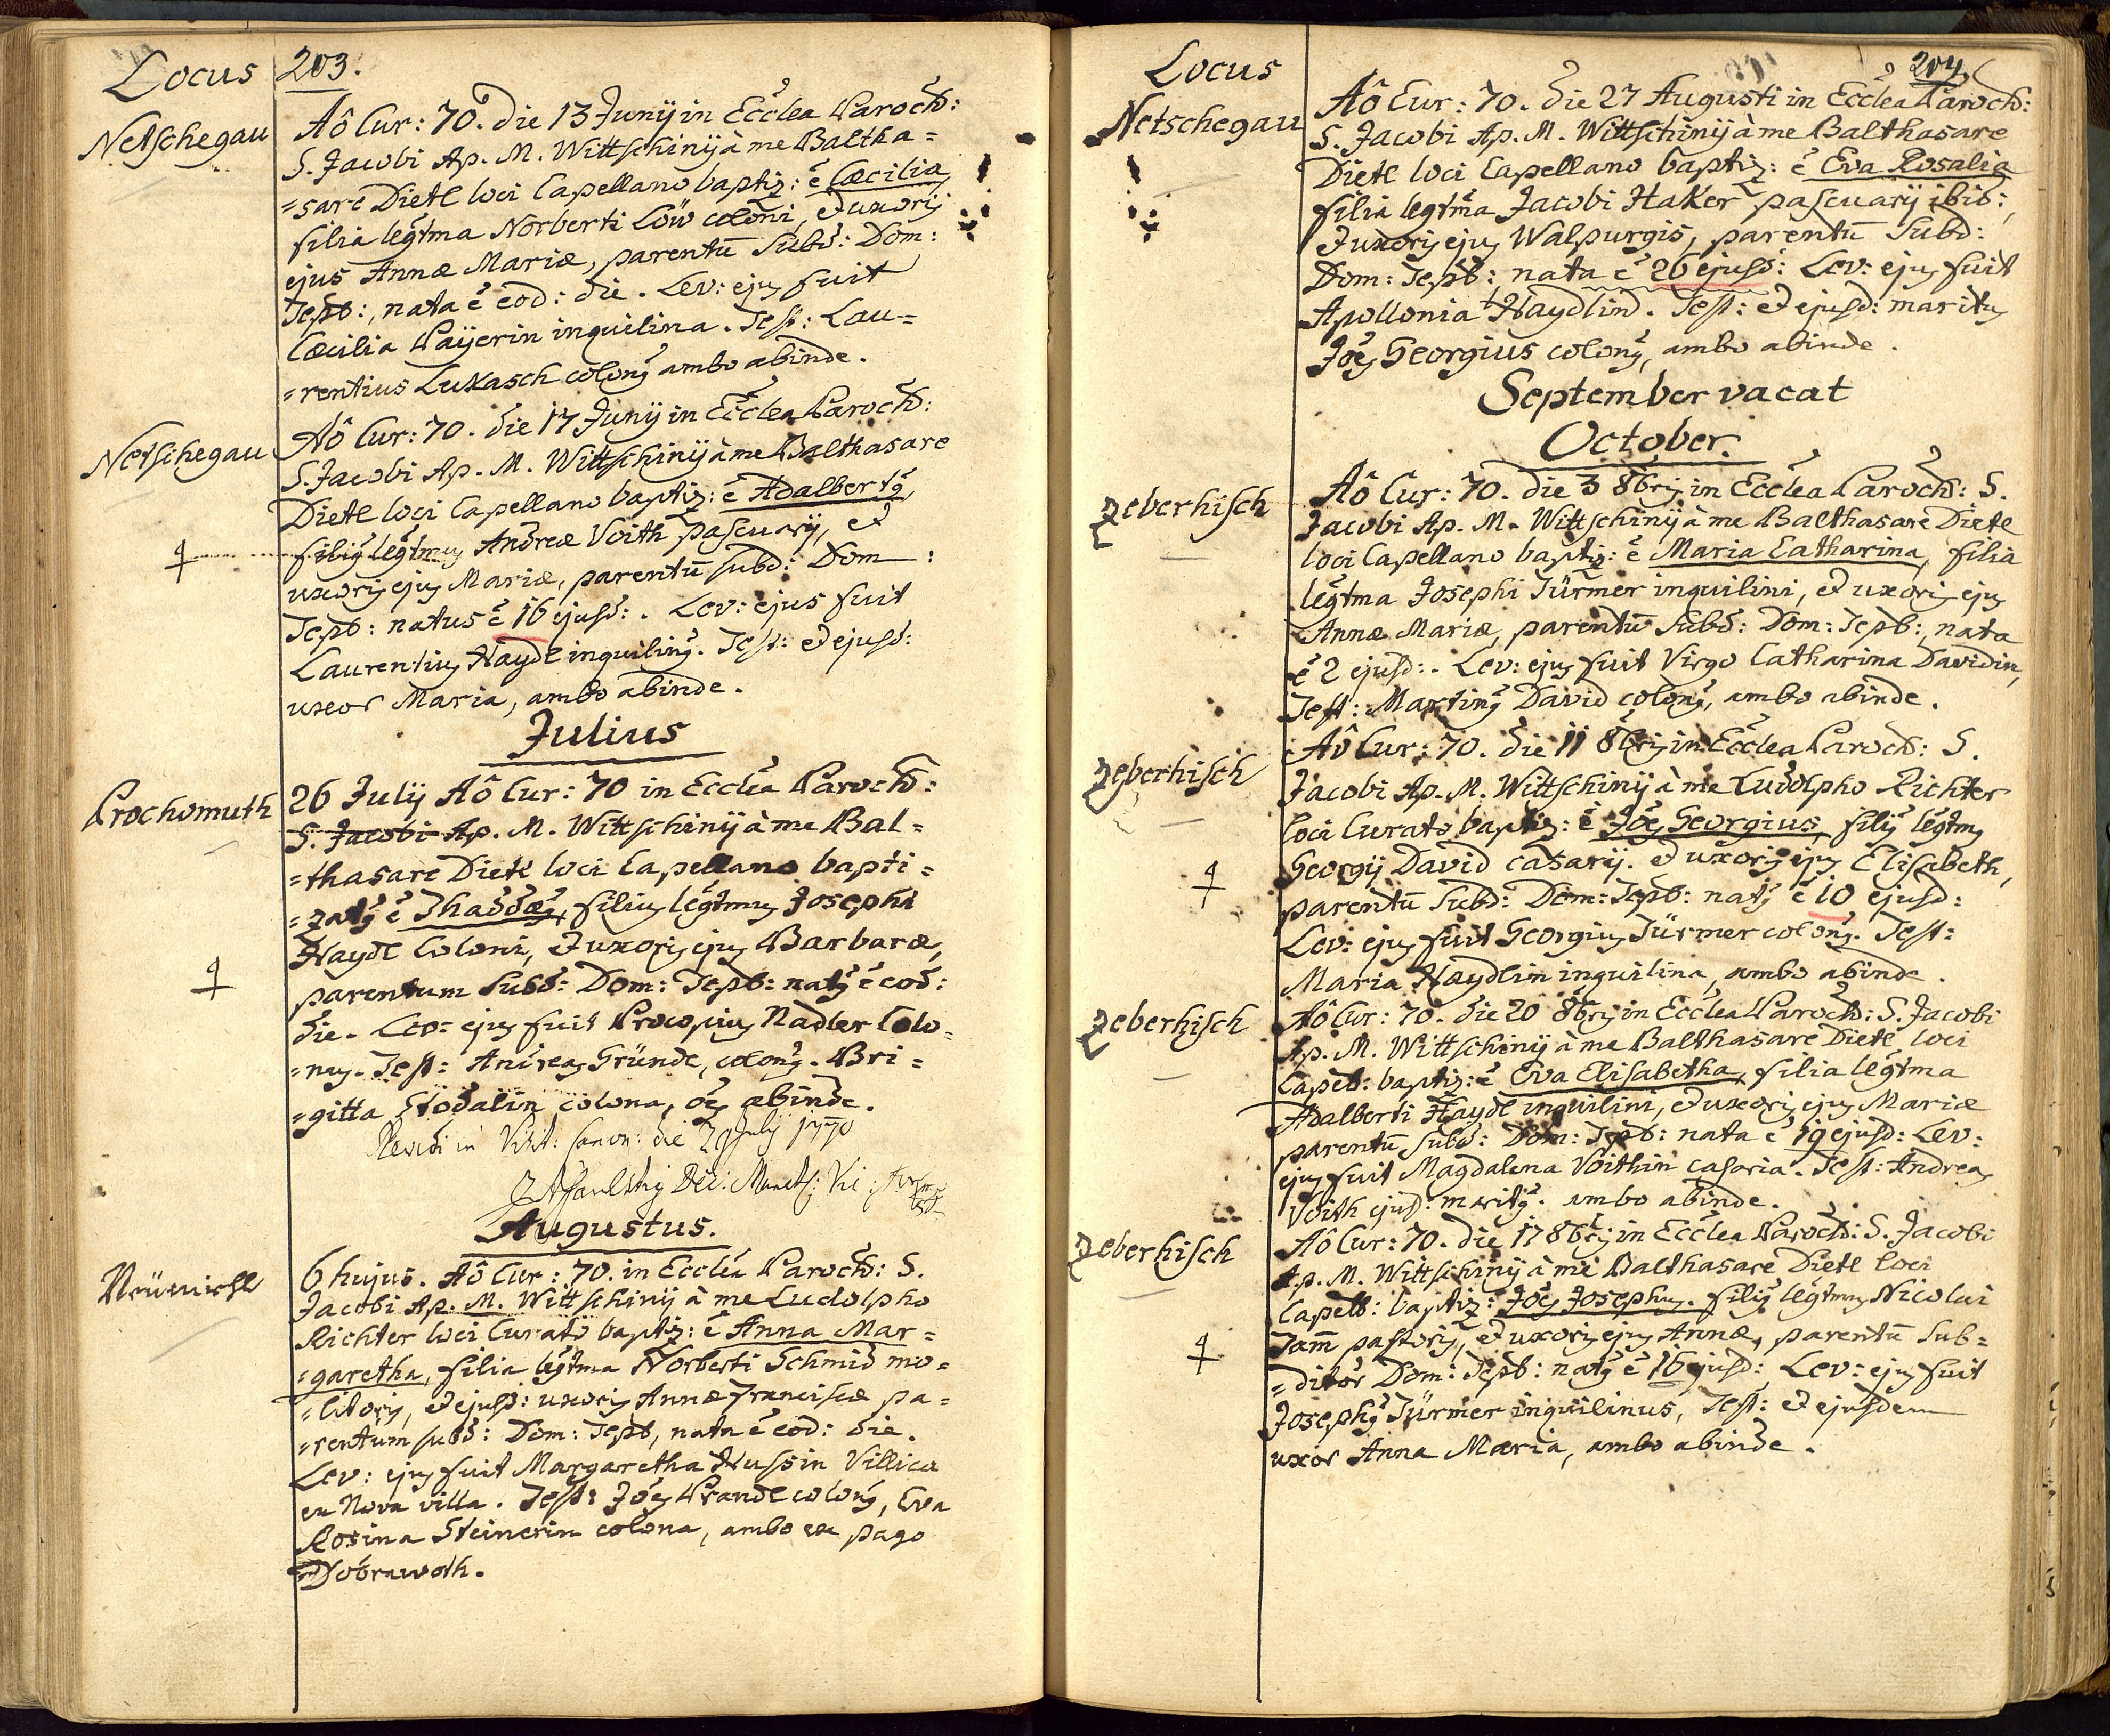 Locus
203.
Netschegau
Aô Cur: 70. die 13 Junÿ in Ecclea Paroch:
S. Jacobi Ap. M. Wittschinÿ à me Baltha=
=sare Dietl loci Capellano baptiz: ē Cæcilia
filia legtma Norberti Löw coloni, et uxoris
ejus Annæ Mariæ, parentū subd: Dom:
Tepb:, nata ē eod: die. Lev: ejus fuit
Cæcilia Paÿerin inquilina. Test: Lau=
=rentius Lukasch colon9 ambo abinde.
Netschegau
Aô Cur: 70. die 17 Junÿ in Ecclea Paroch:
S. Jacobi Ap. M. Wittschinÿ à me Balthasare
Dietl loci Capellano baptiz: ē Adalbert9
fili9 legtmus Andreæ Voith pascuarÿ, et
uxoris ejus Mariæ, parentū subd: Dom:
Tepb: natus ē 16 ejusd:. Lev: ejus fuit
Laurentius Haydl inquilin9. Test: et ejusd:
uxor Maria, ambo abinde.
Julius
Prochomuth
26 Julÿ Aô Cur: 70 in Ecclea Paroch:
S. Jacobi Ap. M. Wittschinÿ à me Bal=
=thasare Dietl loci Capellano bapti=
=zat9 ē Thaddæ9, filius legtmus Josephi
Haydl Coloni, et uxoris ejus Barbaræ,
parentum subd: Dom: Tepb: nat9 ē eod:
die. Lev: ejus fuit Procopius Nadler Colo=
=nus. Test: Andreas Gründl, colon9. Bri=
=gitta Stodalin colona, oēs abinde.
Revidi in Visit: Canon: die 29 Julÿ 1770
Augustus.
Neümichl
6 hujus. Aô Cur: 70. in Ecclea Paroch: S.
Jacobi Ap. M. Wittschinÿ à me Ludolpho
Richter loci Curato baptiz: ē Anna Mar=
=garetha, filia legtma Norberti Schmid mo=
=litoris, et ejusd: uxoris Annæ Franciscæ pa=
=rentum subd: Dom: Tepb, nata ē eod: die.
Lev: ejus fuit Margaretha Hussin Villica
ex Nova villa. Test: Joēs Prandl colon9, Eva
Rosina Steinerin colona, ambo ex pago
Dobrawoth.
Locus
204
Netschegau
Aô Cur: 70. die 27 Augusti in Ecclea Paroch:
S. Jacobi Ap. M. Wittschinÿ à me Balthasare
Dietl loci Capellano baptiz: ē Eva Rosalia
filia legtma Jacobi Haker pascuarÿ ibid:,
et uxoris ejus Walpurgis, parentū subd:
Dom: Tepb: nata ē 26 ejusd: Lev: ejus fuit
Apollonia Haydlin. Test: et ejusd: maritus
Joēs Georgius colon9, ambo abinde.
September vacat
October.
Zeberhisch
Aô Cur: 70. die 3 8bris in Ecclea Paroch: S.
Jacobi Ap. M. Wittschinÿ à me Balthasare Dietl
loci Capellano baptiz: ē Maria Catharina, filia
legtma Josephi Türmer inquilini, et uxoris ejus
Annæ Mariæ, parentū subd: Dom: Tepb:, nata
ē 2 ejusd:. Lev: ejus fuit Virgo Catharina Davidin,
Test: Martin9 David colon9, ambo abinde.
Zeberhisch
Aô Cur: 70. die 11 8bris in Ecclea Paroch: S.
Jacobi Ap. M. Wittschinÿ à me Ludolpho Richter
loci Curato baptiz: ē Joēs Georgius, fili9 legtmus
Georgÿ David casarÿ. et uxoris ejus Elisabeth,
parentū subd: Dom: Tepb: nat9 ē 10 ejusd:
Lev: ejus fuit Georgius Türmer colon9. Test:
Maria Haydlin inquilina, ambo abinde.
Zeberhisch
Aô Cur: 70. die 20 8bris in Ecclea Paroch: S. Jacobi
Ap. M. Wittschinÿ à me Balthasare Dietl loci
Capell: baptiz: ē Eva Elisabetha, filia legtma
Adalberti Haydl inquilini, et uxoris ejus Mariæ
parentū subd: Dom: Tepb: nata ē 19 ejusd: Lev:
ejus fuit Magdalena Voithin casaria. Test: Andreas
Voith ejusd: marit9. ambo abinde.
Zeberhisch
Aô Cur: 70. die 17 8bris in Ecclea Paroch: S. Jacobi
Ap. M. Wittschinÿ à me Balthasare Dietl loci
Capell: baptiz: Joēs Josephus. fili9 legtmus Nicolai
Tam̄ pastoris, et uxoris ejus Annæ, parentū sub=
=ditor Dom: Tepb: nat9 ē 16 ejusd: Lev: ejus fuit
Joseph9 Türmer inquilinus, Test: et ejusdem
uxor Anna Maria, ambo abinde.